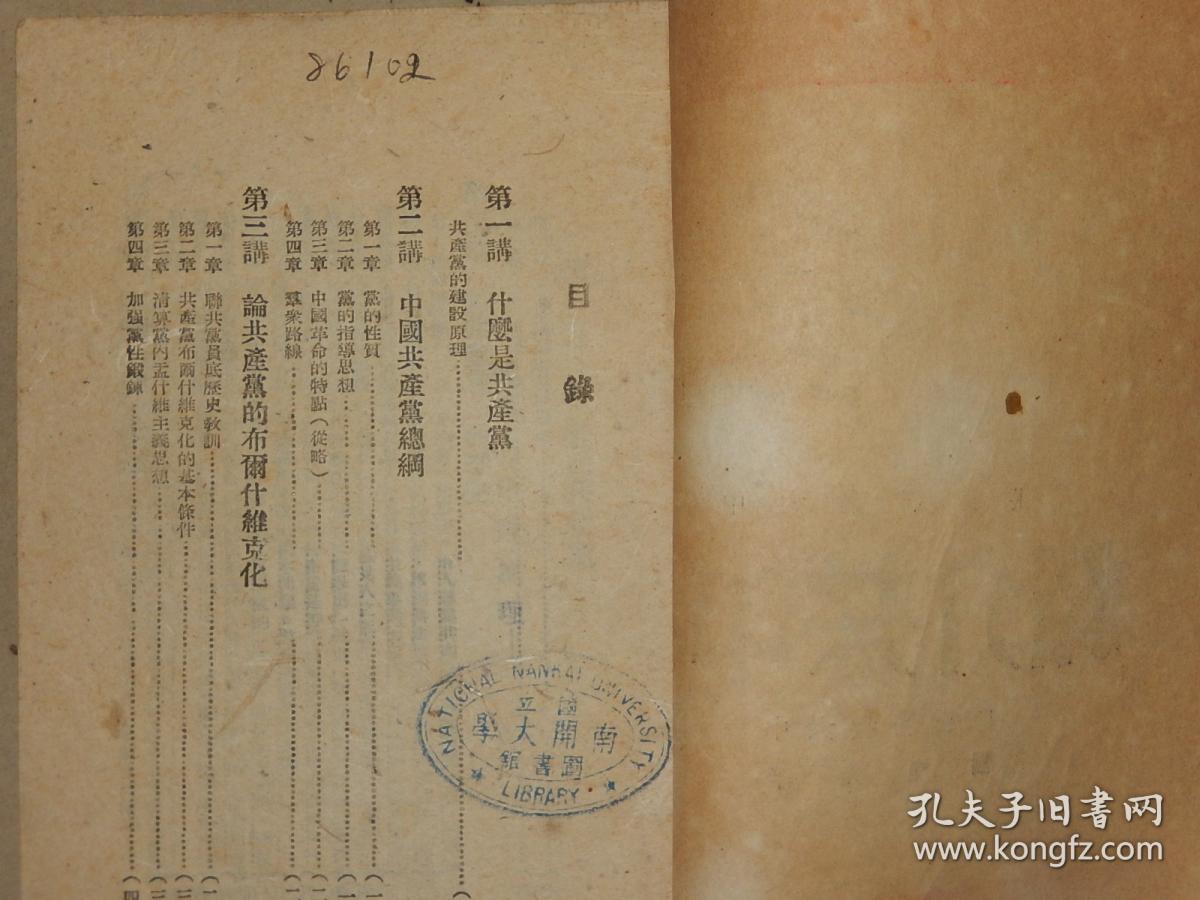 86102
目錄
第一講 什麼是共產黨
共產黨的建設原理
第二講 中國共產黨總綱
第一章 黨的性質
第二章 黨的指導思想
第三章 中國革命的特點（從略）
第四章 羣衆路線
第三講 論共產黨的布爾什維克化
第一章 聯共黨員底歷史教訓
第二章 共產黨布爾什維克化的基本條件
第三章 清算黨內孟什維主義思想
第四章 加强黨性鍛鍊
NATIONAL NANKAI UNIVERSITY
國立
南開大學
圖書館
LIBRARY
孔夫子旧书网
www.kongfz.com